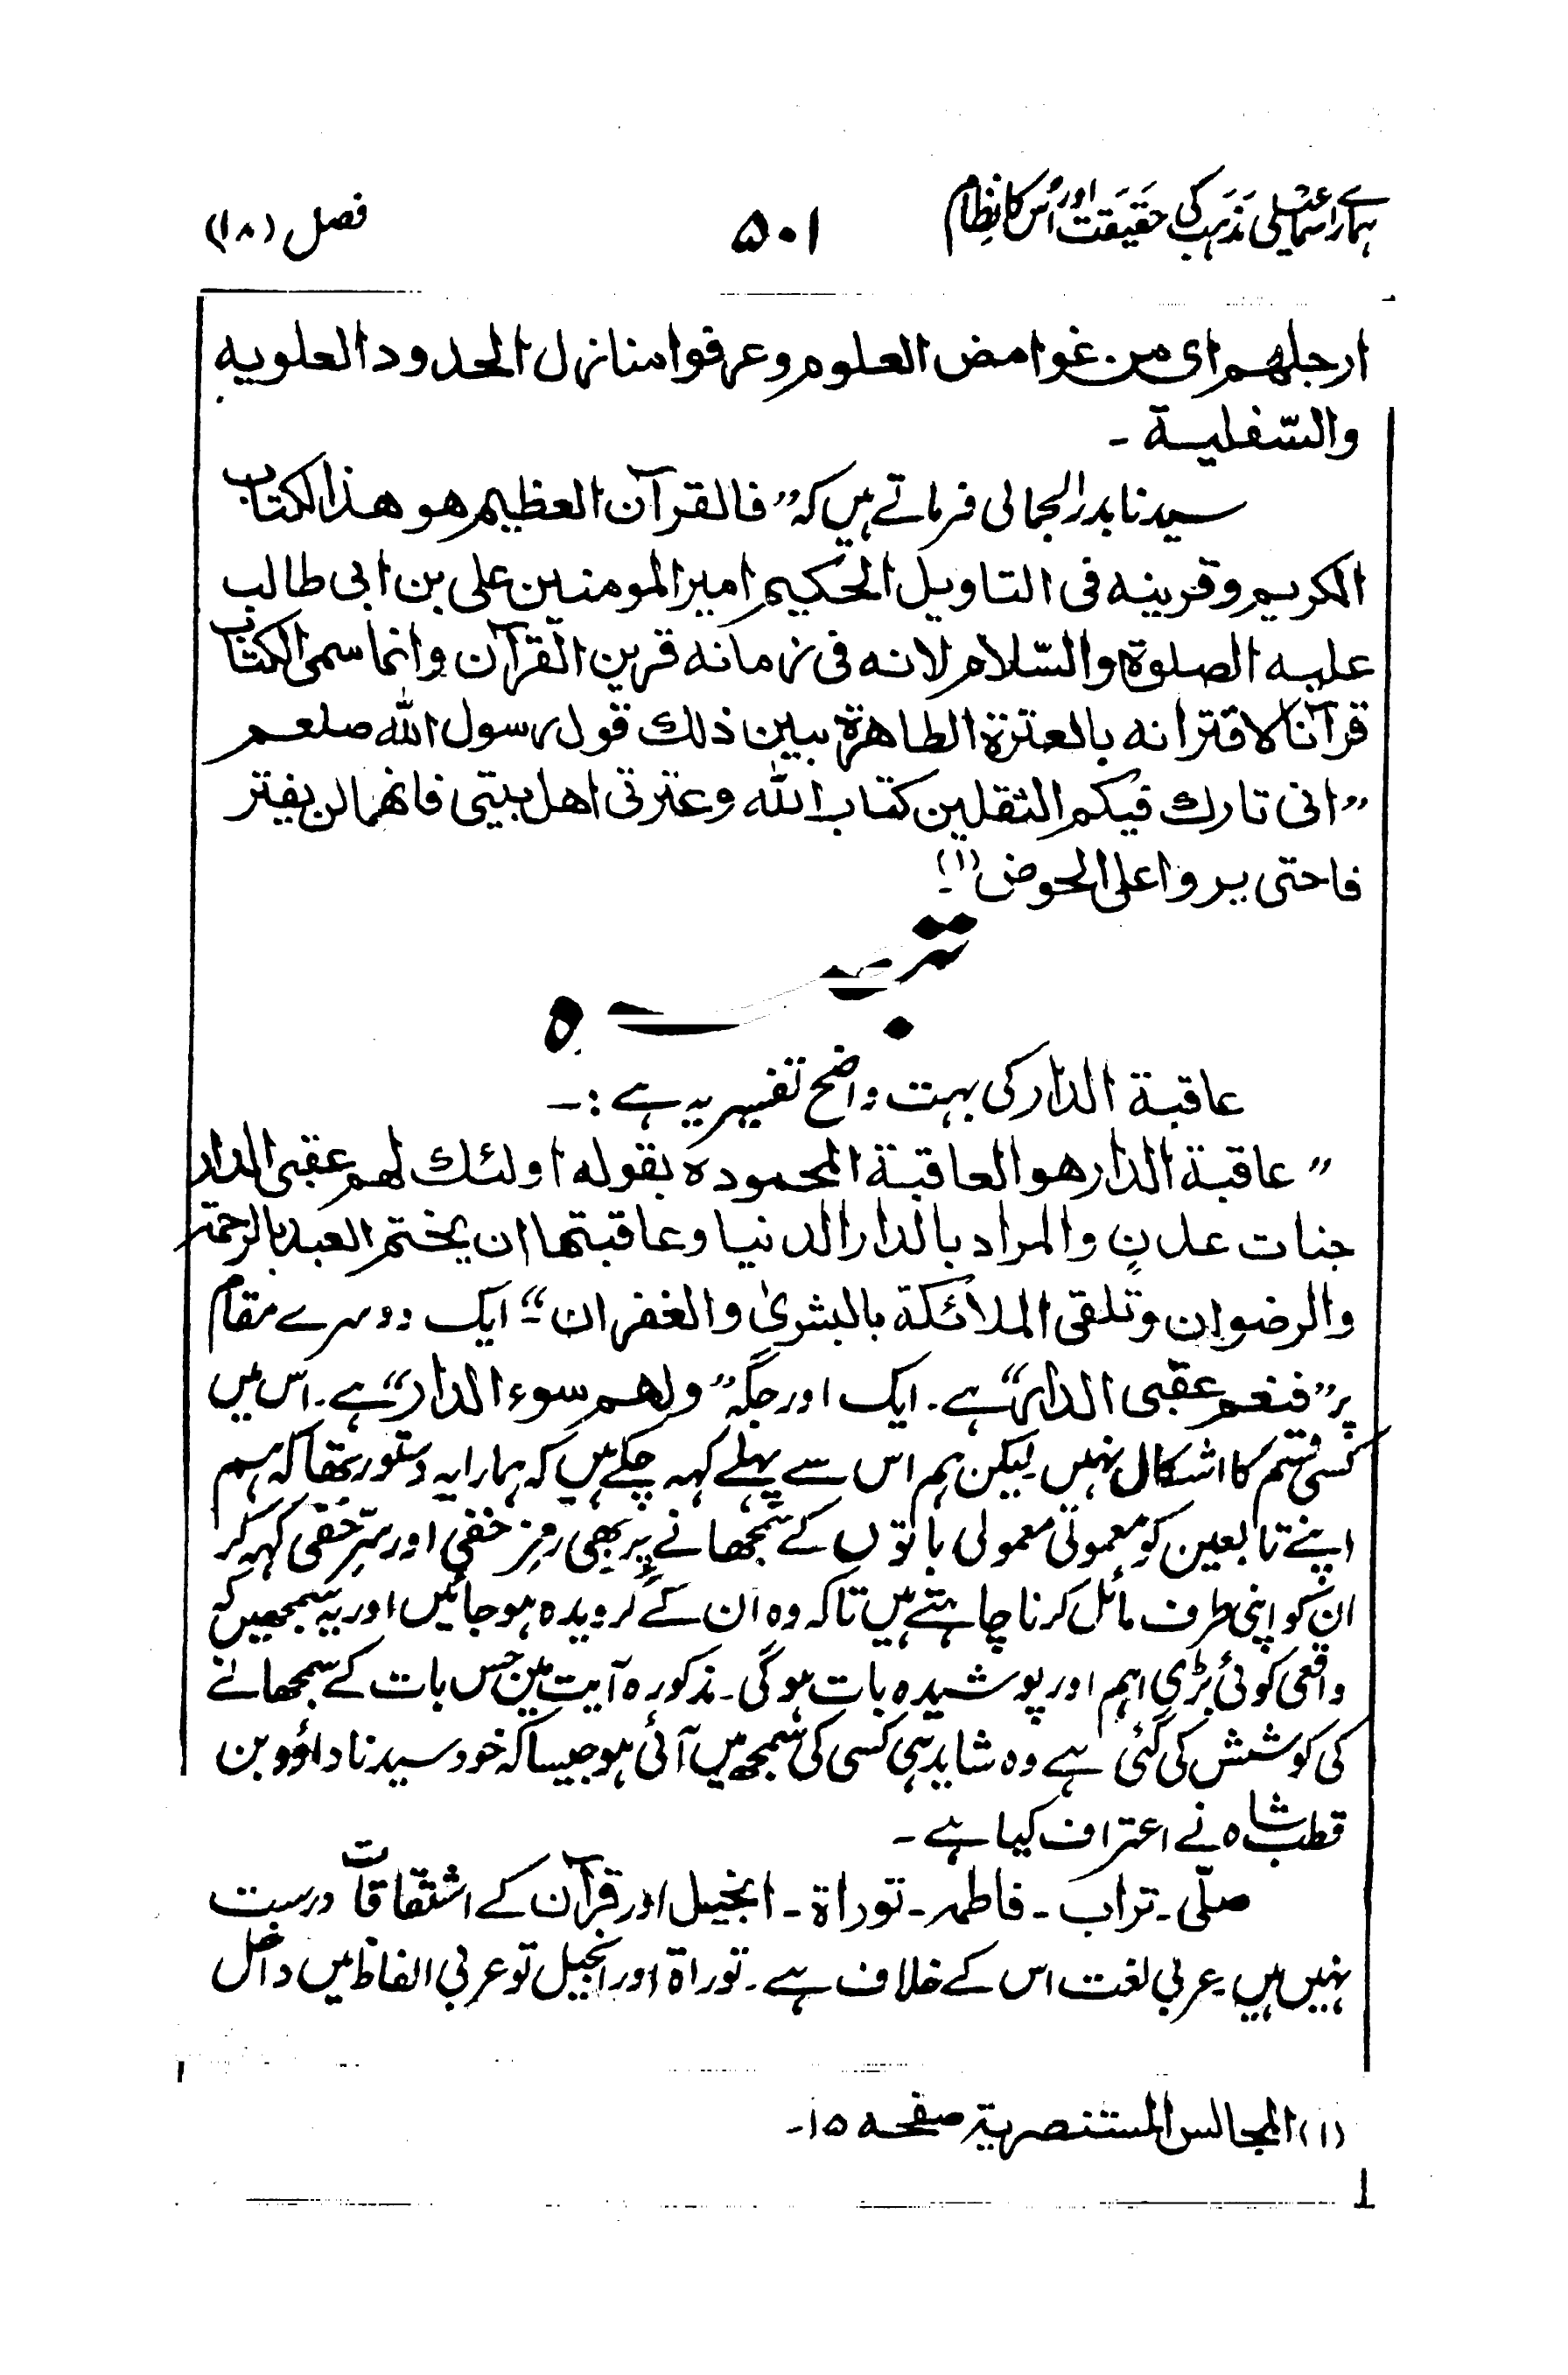 ہمارے اسماعیلی مذہب کی حقیقت اور اُس کا نظام ۵۰۱ فصل (۱۸)
ارجلهم ای من غوامض العلوم وعرفوا منازل الحدود العلویه
والسّفلیة ۔
سیدنا بدر الجمالی فرماتے ہیں کہ ”فالقرآن العظیم هو هذا الکتاب
الکریم وقرینه فی التاویل الحکیم امیر المومنین علی بن ابی طالب
علیه الصلوة والسّلام لانه فی زمانه قرین القرآن وانما سمی الکتاب
قرآنا لاقترانه بالعترة الطاهرة یبین ذلك قول رسول الله صلعم
”انی تارك فیکم الثقلین کتاب الله وعترتی اهل بیتی فانهما لن یفتر
فاحتی یروا علی الحوض (۱)۔
تبصرہ
عاقبة الدار کی بہت واضح تفسیر یہ ہے :۔
”عاقبة الدار هو العاقبة المحموده بقوله اولئك لهم عقبی الدار
جنات عدنٍ والمراد بالدار الدنیا وعاقبتها ان یختم العبد بالرحمة
والرضوان وتلقی الملائکة بالبشریٰ والغفران“۔ ایک دوسرے مقام
پر ”فنعم عقبی الدار“ ہے۔ ایک اور جگہ ”ولهم سوء الدار“ ہے۔ اس میں
کسی قسم کا اشکال نہیں۔ لیکن ہم اس سے پہلے کہہ چکے ہیں کہ ہمارا یہ دستور تھا کہ ہم
اپنے تابعین کو معمولی معمولی باتوں کے سمجھانے پر بھی رمزِ خفی اور سرِّ خفی کہہ کر
ان کو اپنی طرف مائل کرنا چاہتے ہیں تاکہ وہ ان کے گرویدہ ہو جائیں اور یہ سمجھیں کہ
واقعی کوئی بڑی اہم اور پوشیدہ بات ہوگی۔ مذکورہ آیت میں جس بات کے سمجھانے
کی کوشش کی گئی ہے وہ شاید ہی کسی کی سمجھ میں آئی ہو جیسا کہ خود سیدنا داؤد بن
قطب شاہ نے اعتراف کیا ہے ۔
صلّی ۔ تراب ۔ فاطمہ ۔ توراة ۔ انجیل اور قرآن کے اشتقاقات درست
نہیں ہیں۔ عربی لغت اس کے خلاف ہے۔ توراة اور انجیل تو عربی الفاظ میں داخل
(۱) المجالس المستنصریة صفحہ ۱۵۔